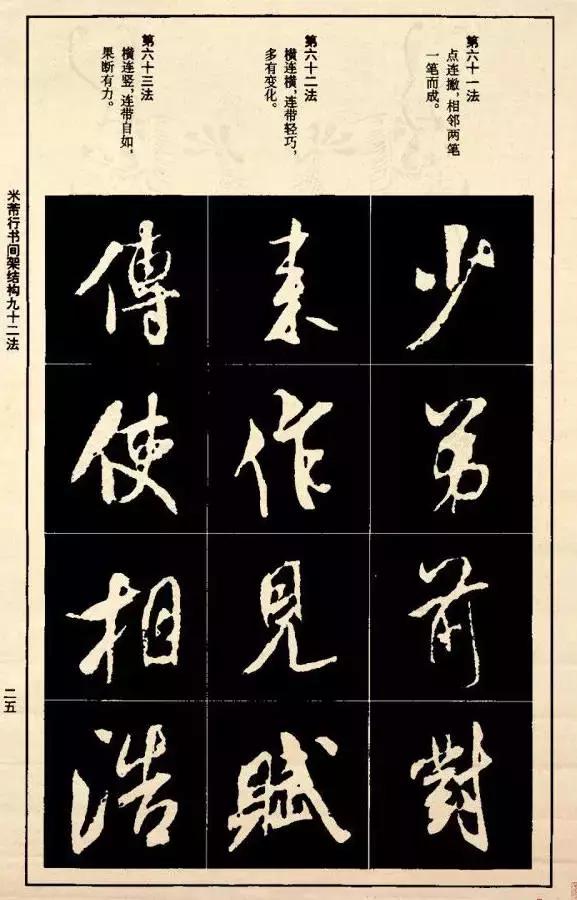 第六十一法
点连撇，相邻两笔
一笔而成。
少
弟
前
對
第六十二法
横连横，连带轻巧，
多有变化。
素
作
見
賦
第六十三法
横连竖，连带自如，
果断有力。
傳
使
相
浩
米芾行书间架结构九十二法
二五